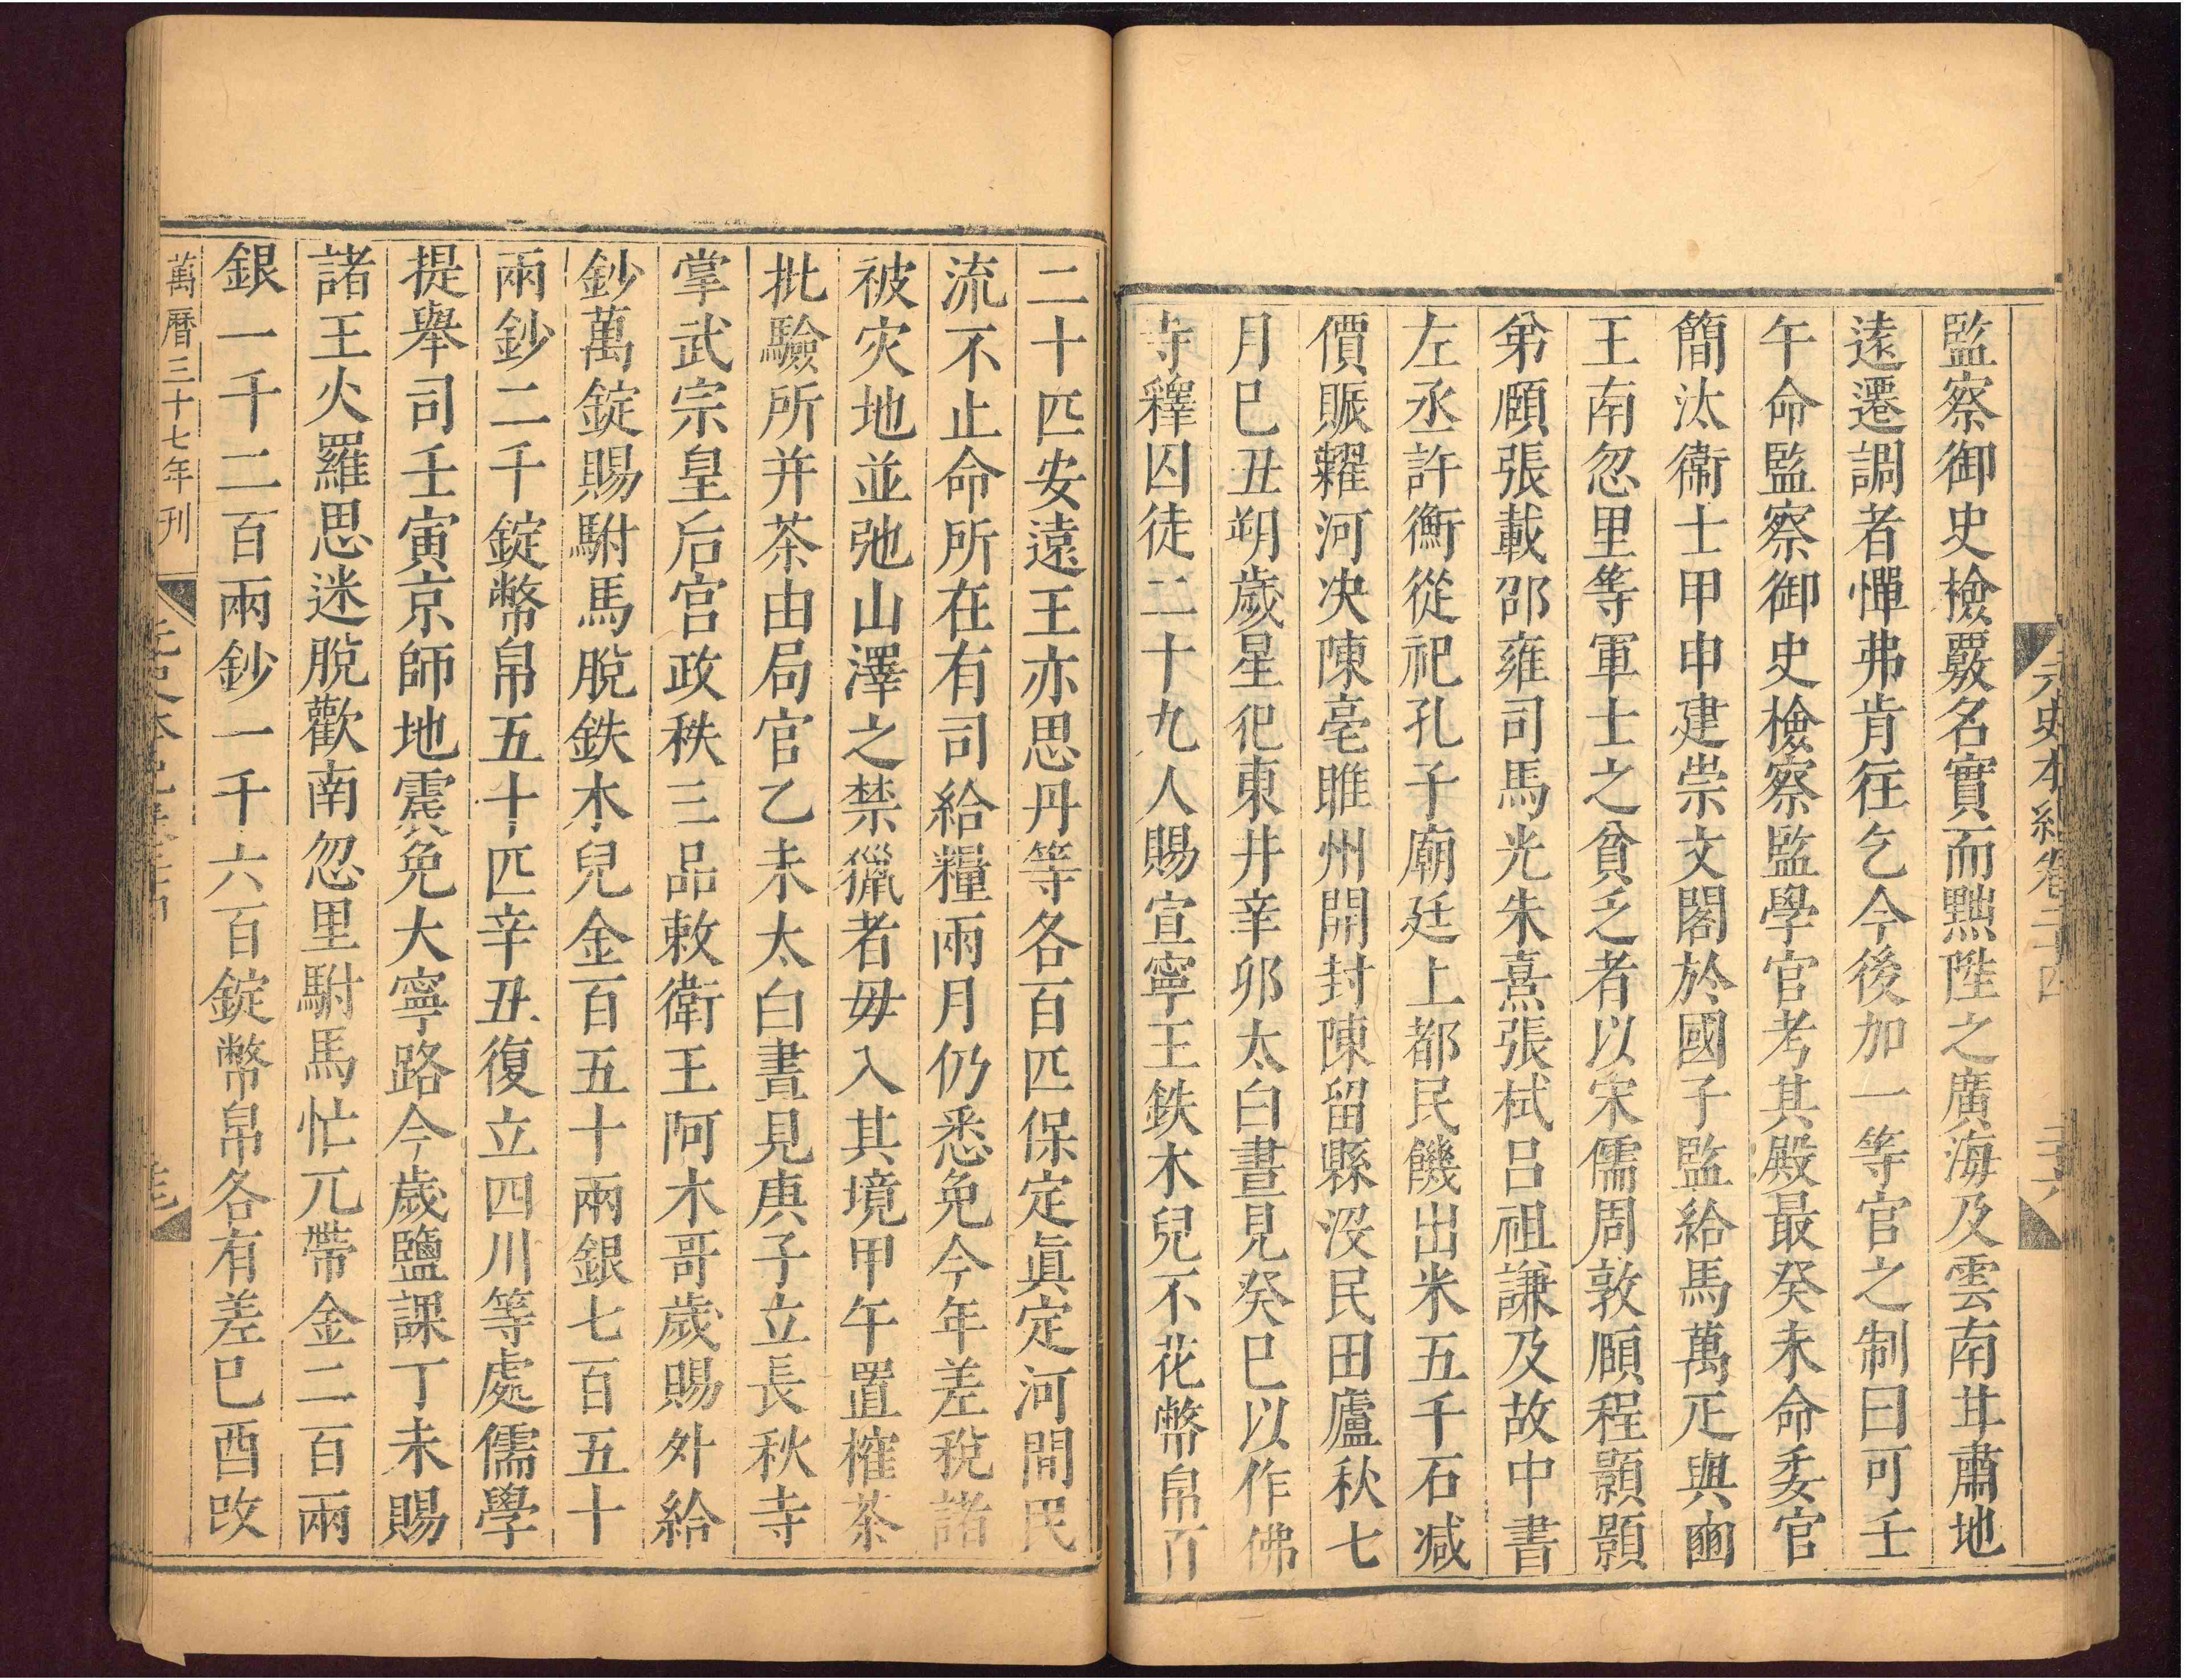 元史本紀卷二十四
二十六
監察御史檢覈名實而黜陞之廣海及雲南甘肅地
遠遷調者憚弗肯往乞今後加一等官之制曰可壬
午命監察御史檢察監學官考其殿最癸未命委官
簡汰衞士甲申建崇文閣於國子監給馬萬疋與豳
王南忽里等軍士之貧乏者以宋儒周敦頤程顥顥
弟頤張載邵雍司馬光朱熹張栻呂祖謙及故中書
左丞許衡從祀孔子廟廷上都民饑出米五千石减
價賑糶河决陳亳睢州開封陳留縣没民田廬秋七
月巳丑朔歲星犯東井辛卯太白晝見癸巳以作佛
寺釋囚徒二十九人賜宣寧王鉄木兒不花幣帛百
二十匹安遠王亦思丹等各百匹保定眞定河間民
流不止命所在有司給糧兩月仍悉免今年差稅諸
被灾地並弛山澤之禁獵者毋入其境甲午置榷茶
批驗所并茶由局官乙未太白晝見庚子立長秋寺
掌武宗皇后宫政秩三品敕衛王阿木哥歲賜外給
鈔萬錠賜駙馬脫鉄木兒金百五十兩銀七百五十
兩鈔二千錠幣帛五十匹辛丑復立四川等處儒學
提舉司壬寅京師地震免大寧路今歲鹽課丁未賜
諸王火羅思迷脫歡南忽里駙馬忙兀帶金二百兩
銀一千二百兩鈔一千六百錠幣帛各有差巳酉改
萬曆三十七年刊